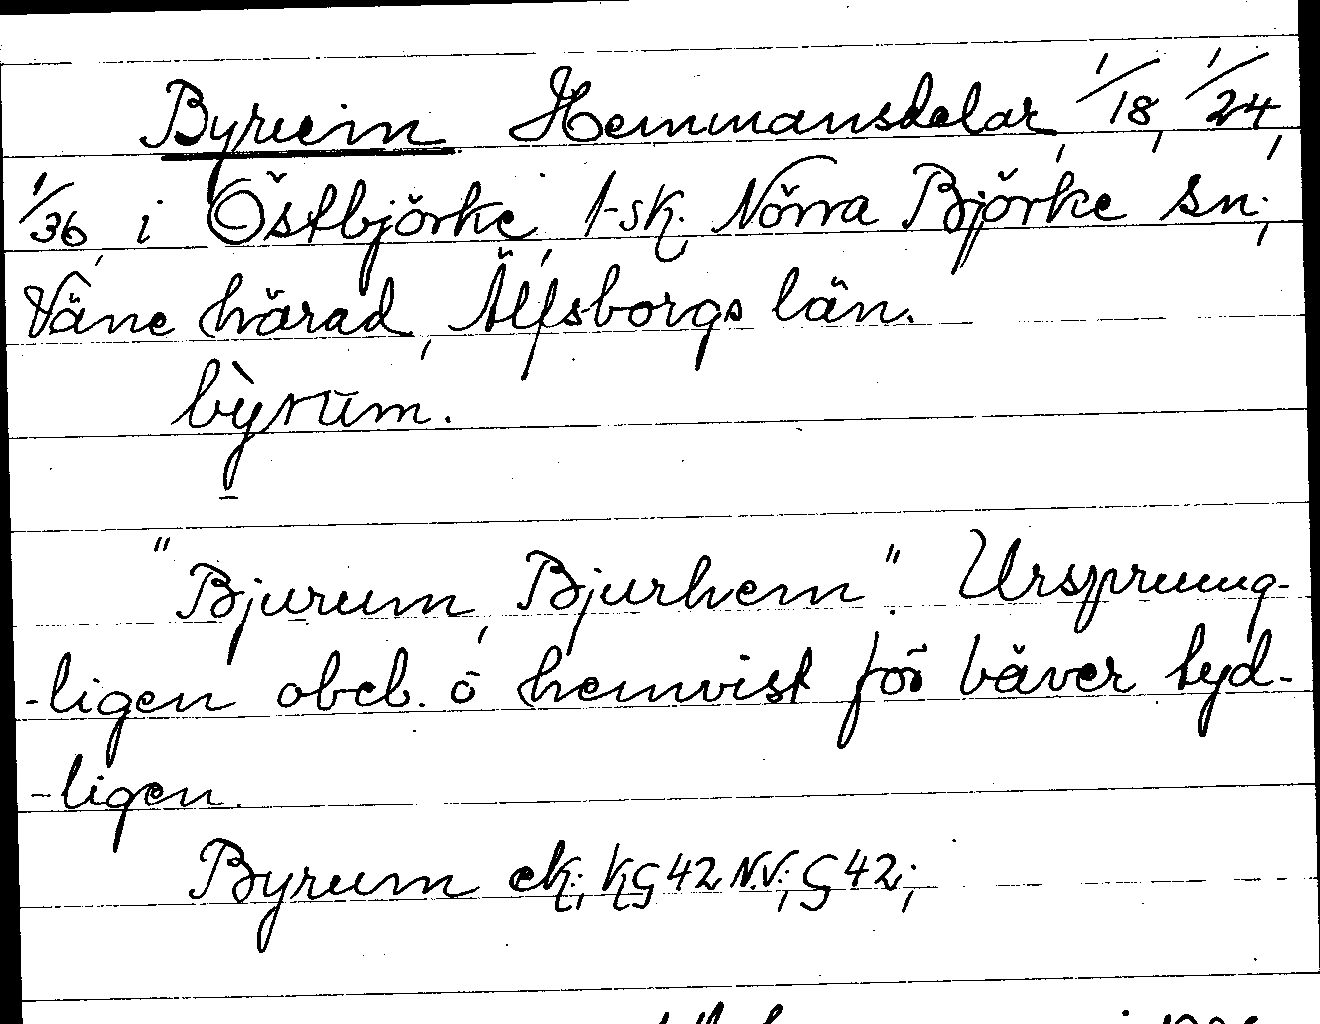 Byrum Hemmansdelar, 1/18, 1/24,
1/36, i Östbjörke, 1-sk. Norra Björke sn.,
Väne härad, Älfsborgs län.
bỳrum.
"Bjurum, Bjurhem". Ursprung-
-ligen obeb. ö hemvist för bäver tyd-
-ligen.
Byrum ek.; KG 42 N.V.; G 42;